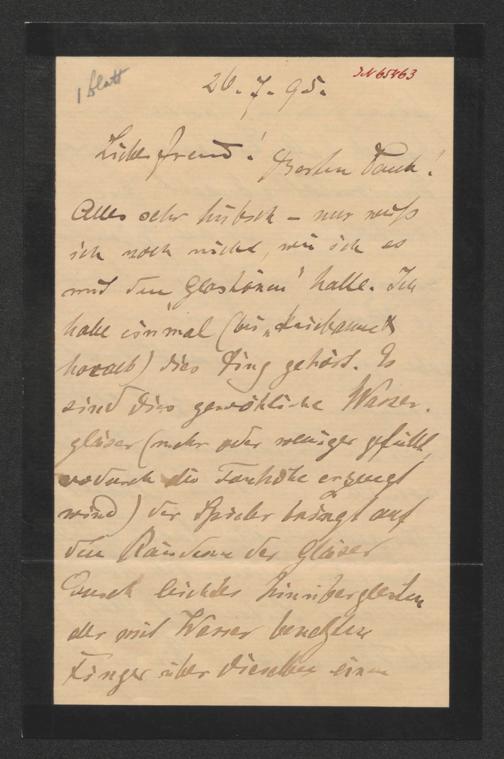 1 Blatt
26. 7. 95.
JN 65463
Lieber Freund! Besten Dank!
Alles sehr hübsch – nur weiß
ich noch nicht, wie ich es
mit den "Glastönen" halte. Ich
habe einmal (bis
herab) dies Ding gehört. Es
sind dies gewöhnliche Wasser-
gläser (mehr oder weniger gefüllt,
wodurch die Tonhöhe erzeugt
wird) der Spieler bringt auf
den Rändern der Gläser
durch leichtes Hinübergleiten
der mit Wasser benetzten
Finger über dieselben einen